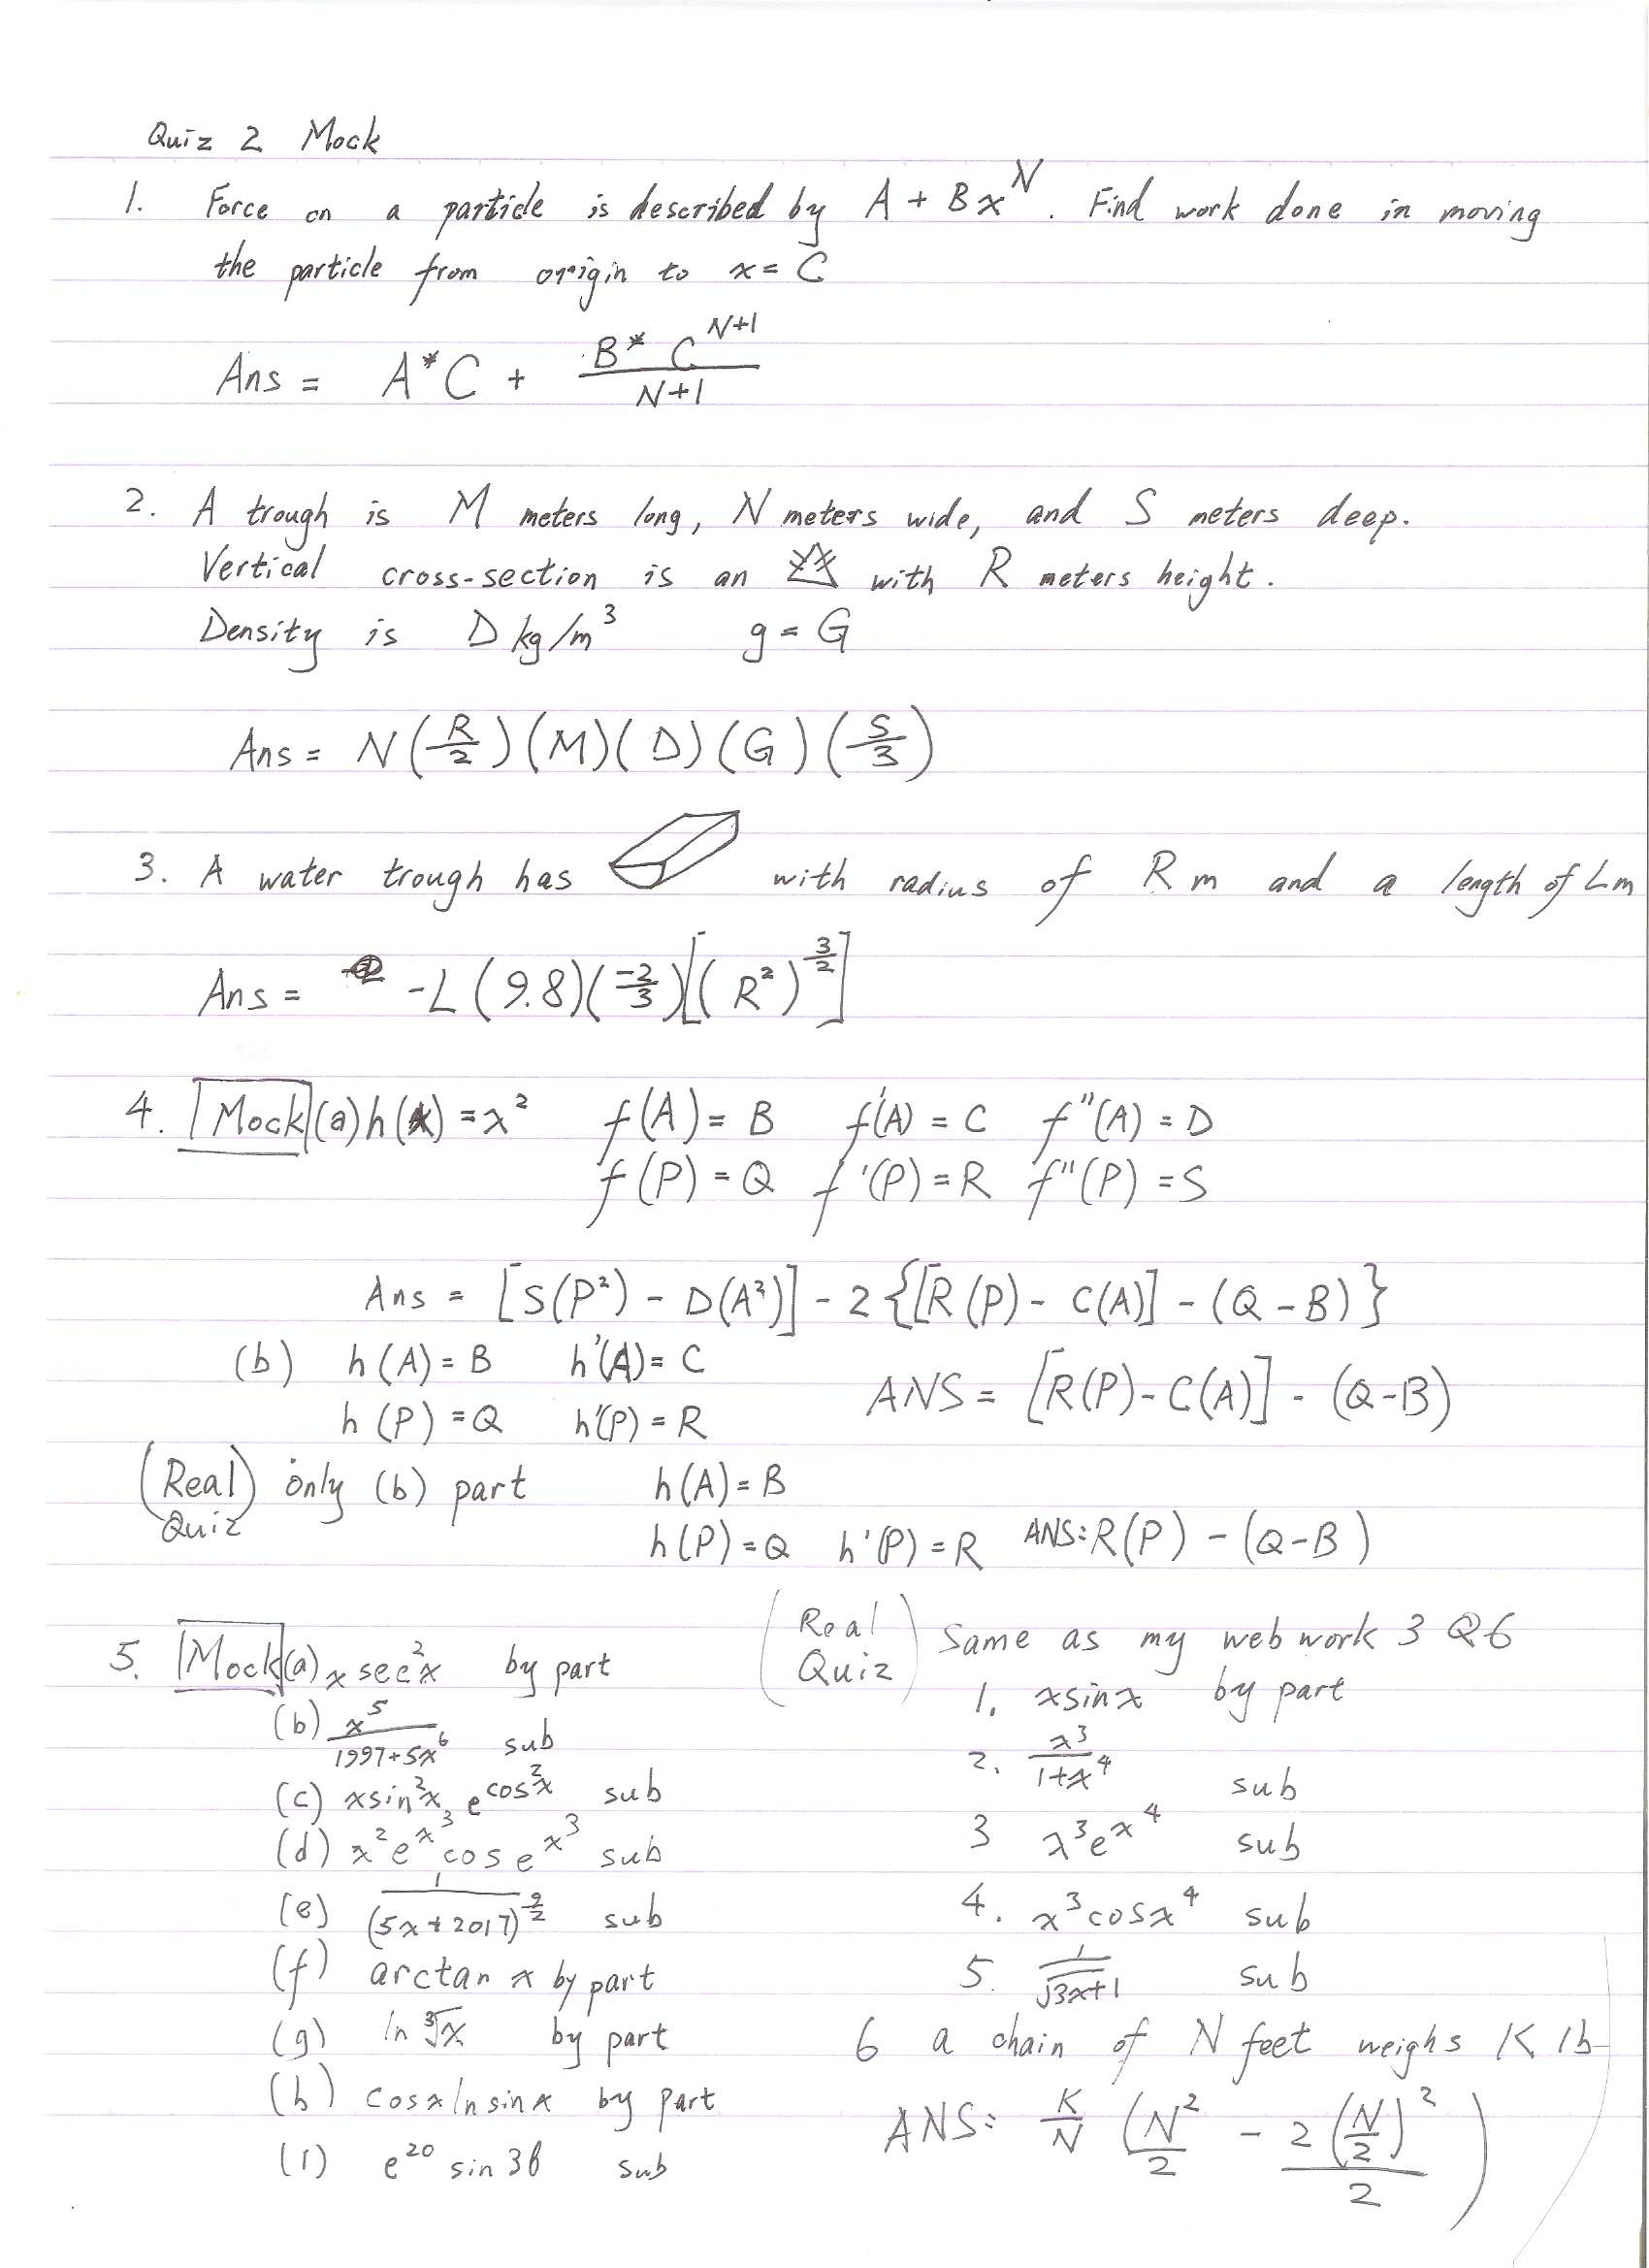 Quiz 2 Mock
1. Force on a particle is described by A + Bx^N. Find work done in moving
the particle from origin to x = C
Ans = A*C + (B* C^(N+1))/(N+1)
2. A trough is M meters long, N meters wide, and S meters deep.
Vertical cross-section is an with R meters height.
Density is D kg/m³ g = G
Ans = N(R/2)(M)(D)(G)(S/3)
3. A water trough has with radius of R m and a length of L m
Ans = -L(9.8)(-2/3)[(R²)^(3/2)]
4. Mock (a) h(x) = x² f(A) = B f'(A) = C f''(A) = D
f(P) = Q f'(P) = R f''(P) = S
Ans = [S(P²) - D(A²)] - 2{[R(P) - C(A)] - (Q - B)}
(b) h(A) = B h'(A) = C
h(P) = Q h'(P) = R ANS = [R(P) - C(A)] - (Q-B)
(Real Quiz) only (b) part h(A) = B
h(P) = Q h'(P) = R ANS: R(P) - (Q-B)
5. Mock (a) x sec²x by part
(b) x⁵/(1997+5x⁶) sub
(c) xsin²x, e^(cos²x) sub
(d) x²e^(x³) cos e^(x³) sub
(e) 1/(5x+2017)^(9/2) sub
(f) arctan x by part
(g) ln ∛x by part
(h) cosx ln sinx by part
(i) e^(2θ) sin 3θ sub
(Real Quiz) Same as my webwork 3 Q6
1. xsinx by part
2. x³/(1+x⁴) sub
3 x³e^(x⁴) sub
4. x³cosx⁴ sub
5. 1/√(3x+1) sub
6 a chain of N feet weighs K lb
ANS: K/N (N²/2 - 2(N/2)²/2)